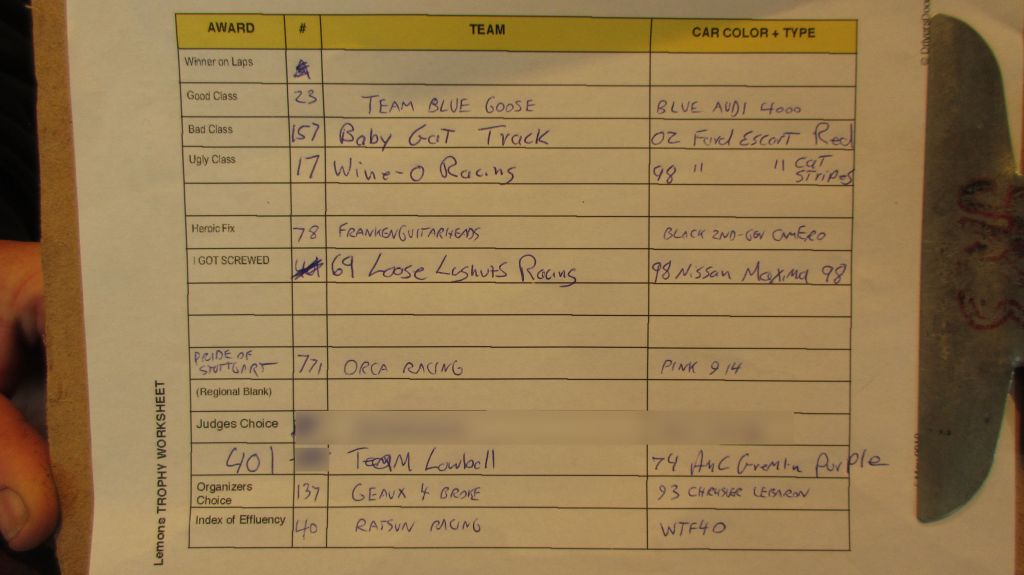 AWARD # TEAM CAR COLOR + TYPE
Winner on Laps
Good Class 23 TEAM BLUE GOOSE BLUE AUDI 4000
Bad Class 157 Baby Got Track 02 Ford Escort Red
Ugly Class 17 Wine-O Racing 98 " " CaT
STRIPES
Heroic Fix 78 FRANKENGUITARHEADS BLACK 2ND-GEN CAMERO
I GOT SCREWED 69 Loose Lugnuts Racing 98 Nissan Maxima 98
PRIDE OF
STUTTGART 771 ORCA RACING PINK 914
(Regional Blank)
Judges Choice
401 TEAM Lowball 74 AMC Gremlin PurPle
Organizers
Choice 137 GEAUX 4 BROKE 93 CHRYSLER LEBARON
Index of Effluency 40 RATSUN RACING WTF40
Lemons TROPHY WORKSHEET